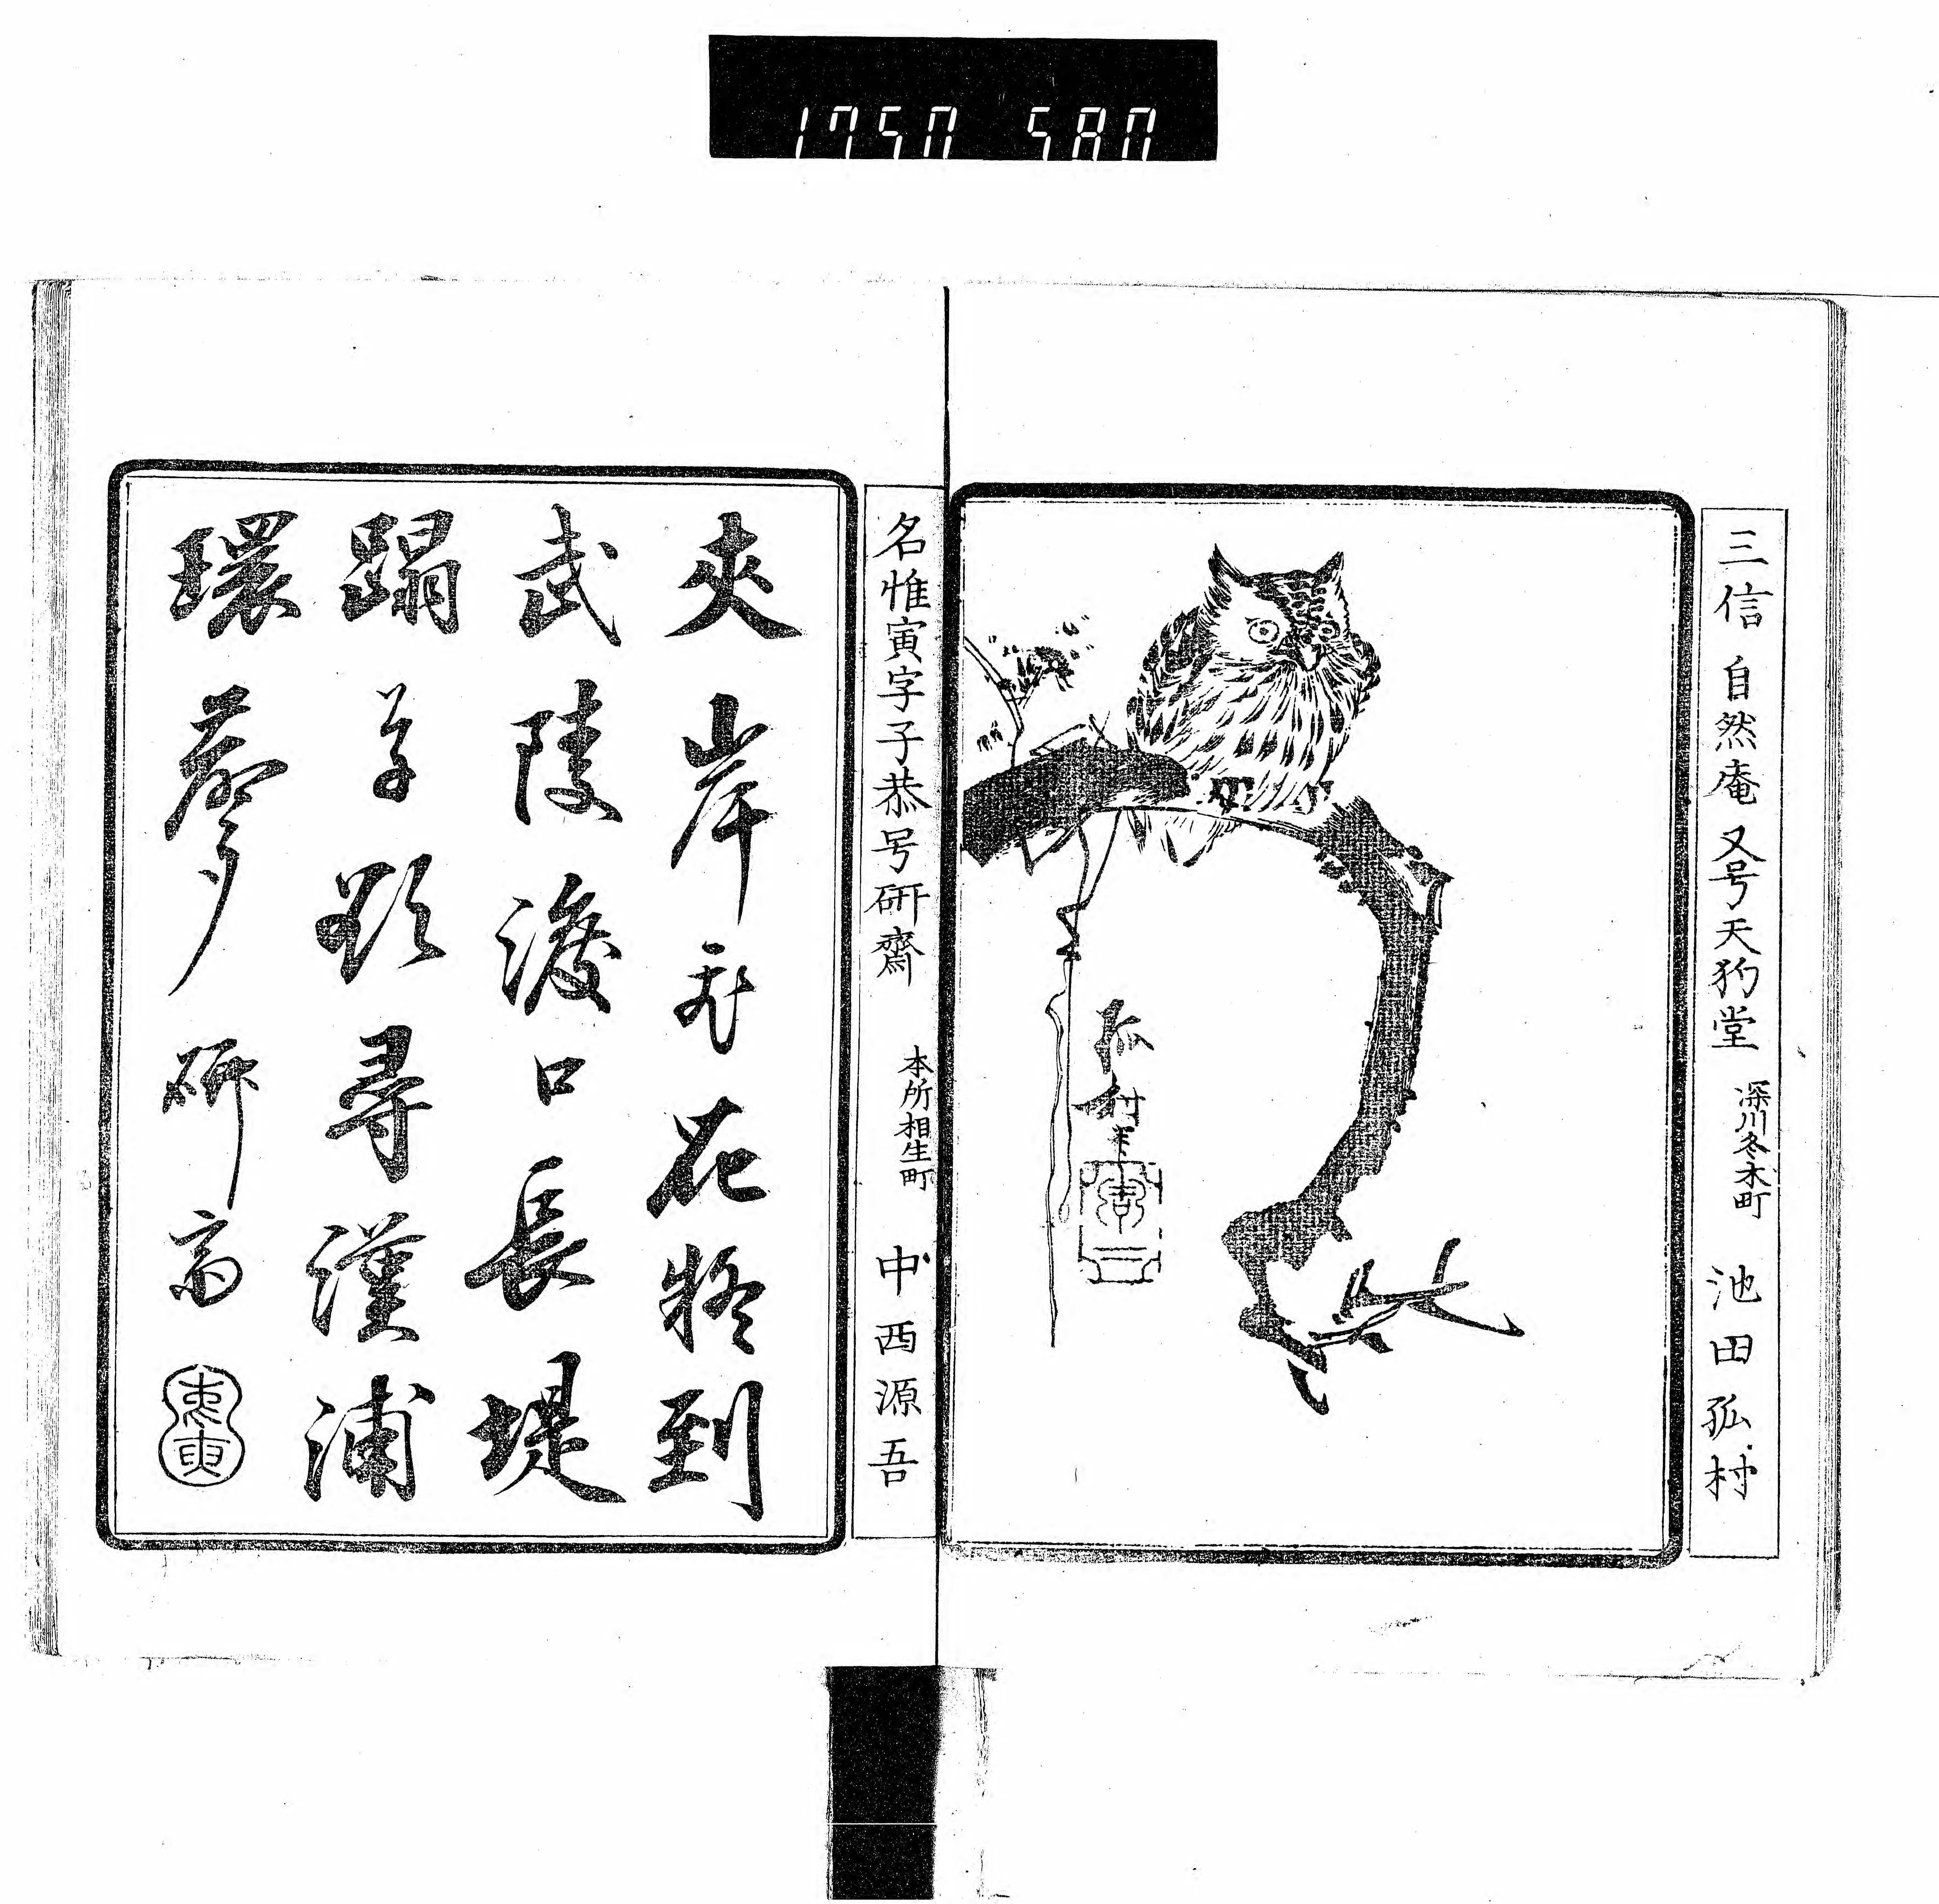 1750 580
三信 自然庵 又号天狗堂 深川冬木町 池田孤村
孤村筆
名惟寅字子恭号研齋 本所相生町 中西源吾
夾岸飛花将到
武陵渡口長堤
蹋草歌尋漢浦
環夢 研斎
惟寅